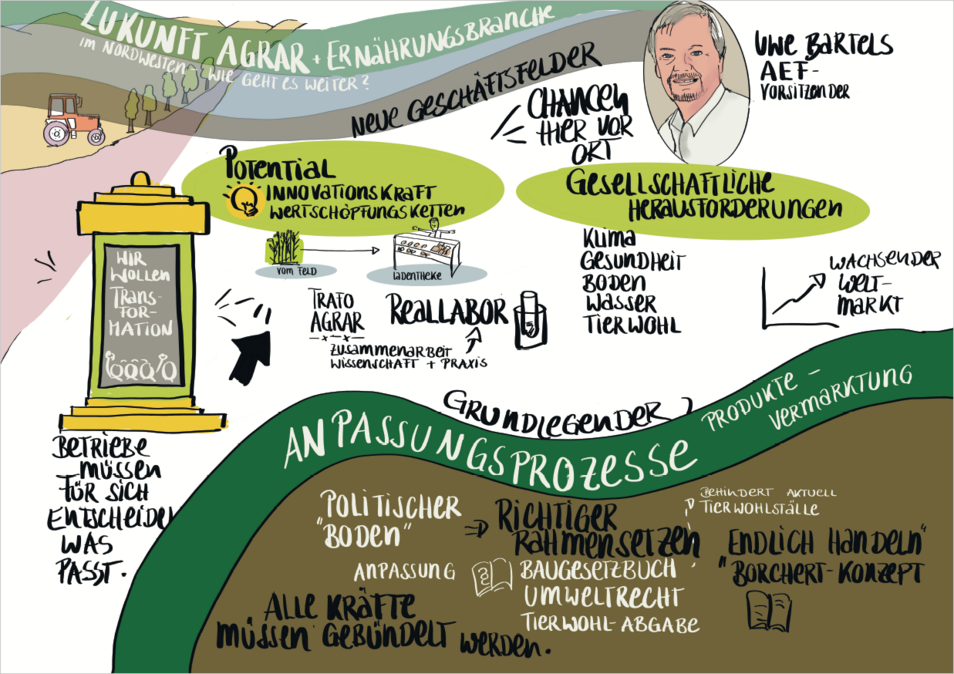 ZUKUNFT AGRAR + ERNÄHRUNGSBRANCHE
IM NORDWESTEN - WIE GEHT ES WEITER?
NEUE GESCHÄFTSFELDER
CHANCEN
HIER VOR
ORT
UWE BARTELS
AEF-
VORSITZENDER
POTENTIAL
INNOVATIONSKRAFT
WERTSCHÖPFUNGSKETTEN
VOM FELD
LADENTHEKE
GESELLSCHAFTLICHE
HERAUSFORDERUNGEN
KLIMA
GESUNDHEIT
BODEN
WASSER
TIERWOHL
WACHSENDER
WELT-
MARKT
WIR
WOLLEN
TRANS-
FOR-
MATION
TRAFO
AGRAR
REALLABOR
ZUSAMMENARBEIT
WISSENSCHAFT + PRAXIS
BETRIEBE
MÜSSEN
FÜR SICH
ENTSCHEIDEN
WAS
PASST.
GRUNDLEGENDER
ANPASSUNGSPROZESSE
PRODUKTE -
VERMARKTUNG
POLITISCHER
"BODEN"
=> RICHTIGER
RAHMENSETZEN
BEHINDERT AKTUELL
TIERWOHLSTÄLLE
ANPASSUNG
§
BAUGESETZBUCH
UMWELTRECHT
TIERWOHL-ABGABE
"ENDLICH HANDELN"
"BORCHERT-KONZEPT
ALLE KRÄFTE
MÜSSEN GEBÜNDELT WERDEN.